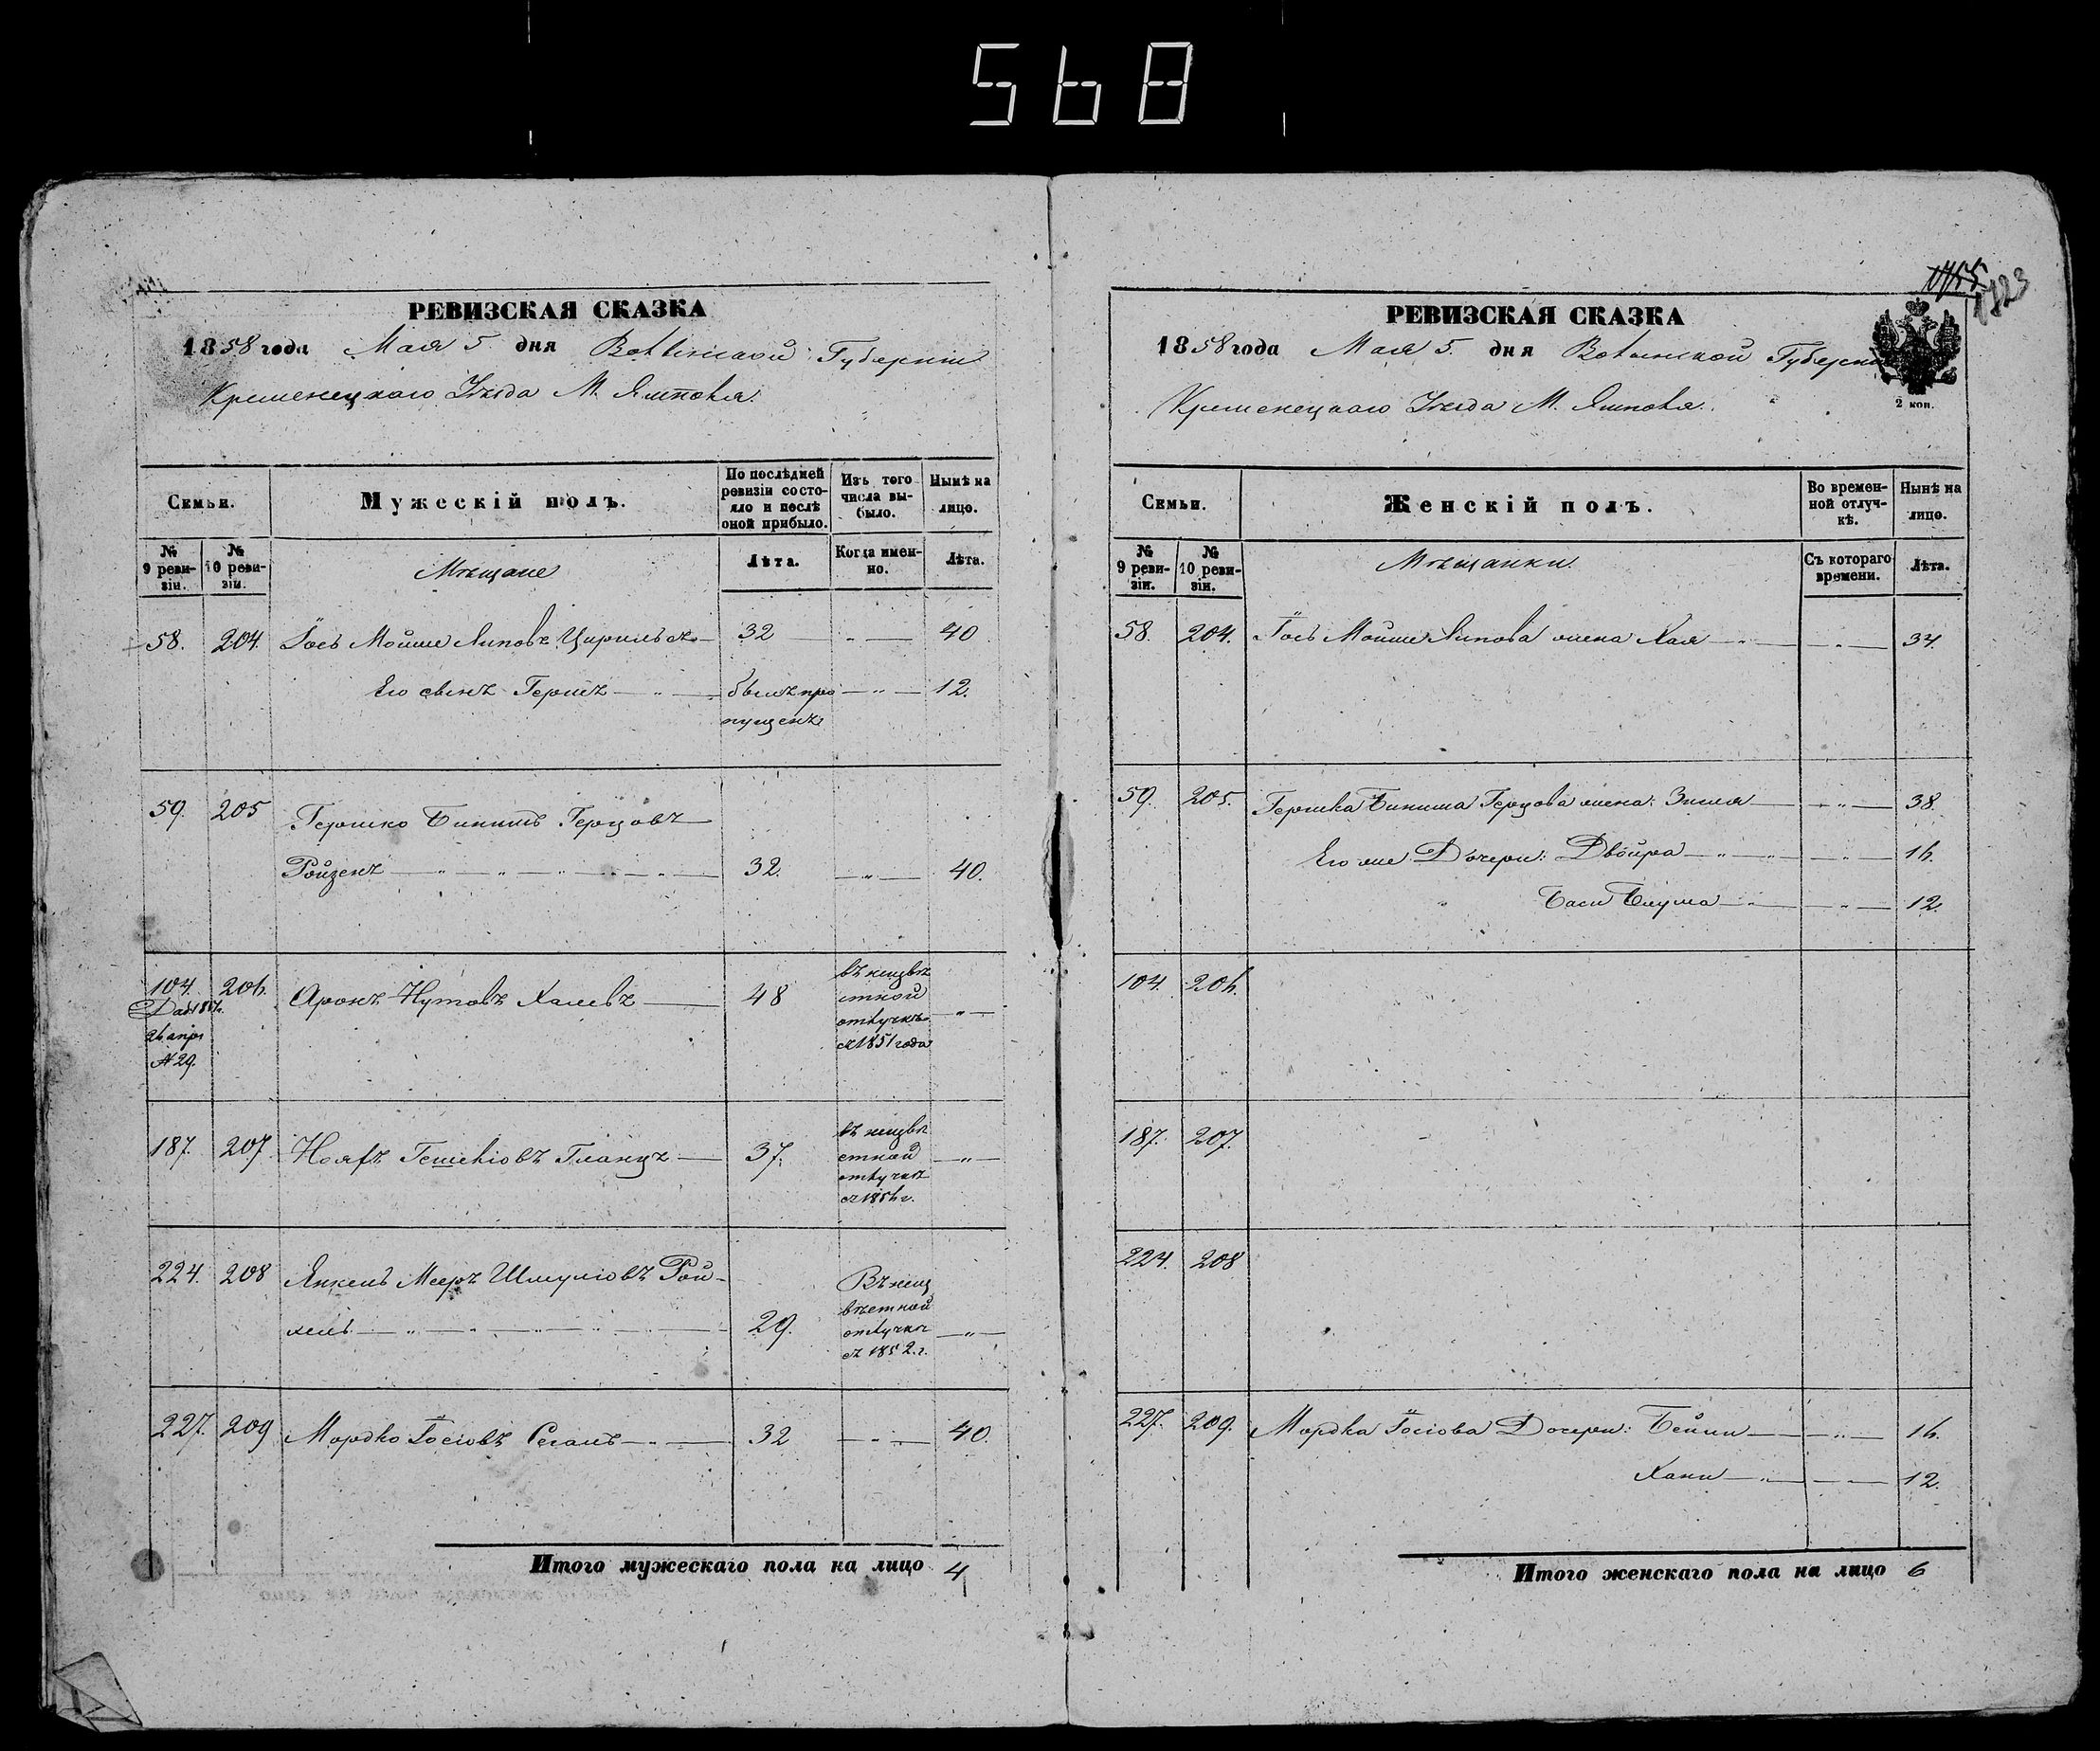 568
РЕВИЗСКАЯ СКАЗКА
1858 года Мая 5 дня Волынской Губерніи
Кременецкаго Уѣзда М. Ямполя.
Семьи.
Мужескій полъ.
По послѣдней ревизіи состояло и послѣ оной прибыло.
Изъ того числа выбыло.
Нынѣ на лицо.
№ 9 ревизіи.
№ 10 ревизіи.
Мѣщане
Лѣта.
Когда именно.
Лѣта.
58. 204. Іось Мойше Липовъ 32 — 40
Его сынъ Гершъ — былъ пропущенъ — 12.
59. 205 Гершко Бинишъ Герцовъ
Ройзенъ — 32. — 40.
104. 206. Аронъ Нутовъ 48 въ неизвѣстной отлучкѣ съ 1851 года —
26 апр.
№ 29.
187. 207 Гланцъ — 37. въ неизвѣстной отлучкѣ —
224. 208 Янкель Мееръ Шмуліовъ Рой-
29. Въ неизвѣстной отлучкѣ съ 1852 г. —
227. 209 Мордко Іосіовъ Сегалъ — 32 — 40.
Итого мужескаго пола на лицо 4
1823
РЕВИЗСКАЯ СКАЗКА
1858 года Мая 5. дня Волынской Губерніи
Кременецкаго Уѣзда М. Ямполя.
2 коп.
Семьи.
Женскій полъ.
Во временной отлучкѣ.
Нынѣ на лицо.
№ 9 ревизіи.
№ 10 ревизіи.
Мѣщанки.
Съ котораго времени.
Лѣта.
58. 204. Іось Мойше Липова жена Хая — — 34.
59. 205. Гершка Биниша Герцова жена: Зисля — — 38.
Его же Дочери: Двойра — — 16.
Бася Блума — — 12.
104. 206.
187. 207.
224. 208
227. 209. Мордка Іосіова Дочери: Бейли — — 16.
Хани — — 12.
Итого женскаго пола на лицо 6